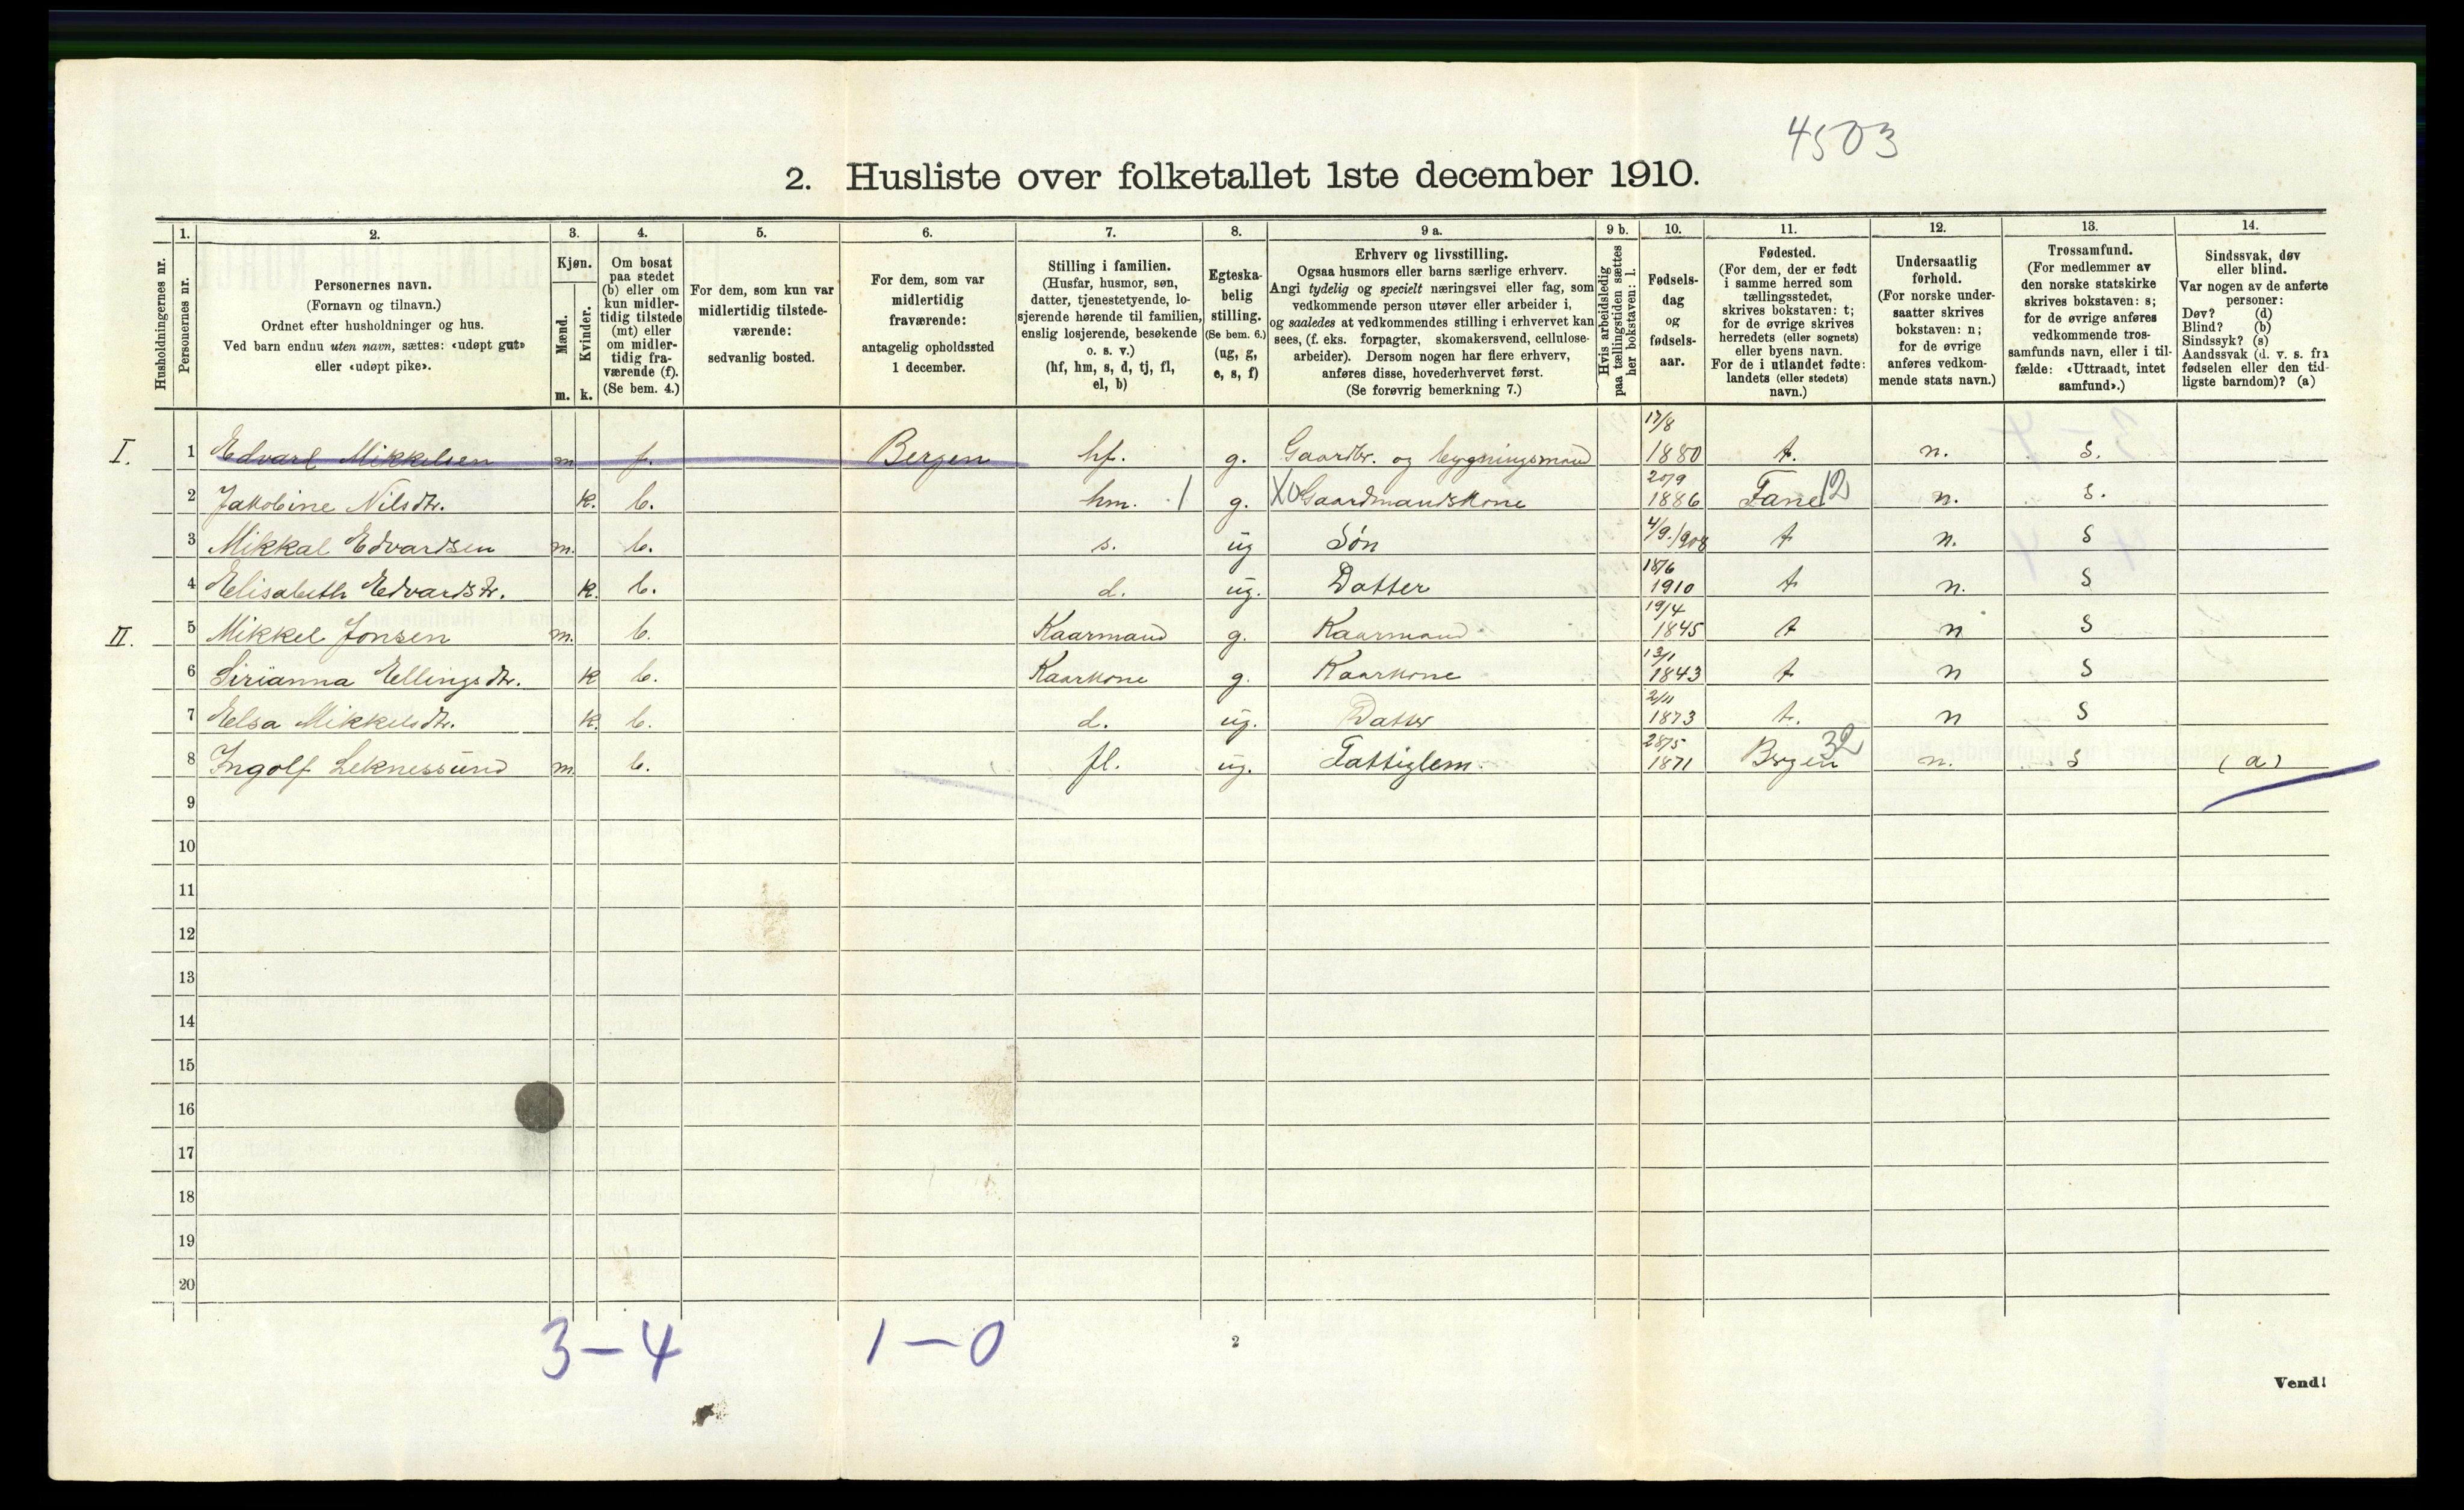 4503
2. Husliste over folketallet 1ste december 1910.
Husholdningernes nr.
1.
Personernes nr.
2.
Personernes navn.
(Fornavn og tilnavn.)
Ordnet efter husholdninger og hus.
Ved barn endnu uten navn, sættes: «udøpt gut»
eller «udøpt pike».
3.
Kjøn.
Mænd.
Kvinder.
m. k.
4.
Om bosat
paa stedet
(b) eller om
kun midler-
tidig tilstede
(mt) eller
om midler-
tidig fra-
værende (f).
(Se bem. 4.)
5.
For dem, som kun var
midlertidig tilstede-
værende:
sedvanlig bosted.
6.
For dem, som var
midlertidig
fraværende:
antagelig opholdssted
1 december.
7.
Stilling i familien.
(Husfar, husmor, søn,
datter, tjenestetyende, lo-
sjerende hørende til familien,
enslig losjerende, besøkende
o. s. v.)
(hf, hm, s, d, tj, fl,
el, b)
8.
Egteska-
belig
stilling.
(Se bem. 6.)
(ug, g,
e, s, f)
9 a.
Erhverv og livsstilling.
Ogsaa husmors eller barns særlige erhverv.
Angi tydelig og specielt næringsvei eller fag, som
vedkommende person utøver eller arbeider i,
og saaledes at vedkommendes stilling i erhvervet kan
sees, (f. eks. forpagter, skomakersvend, cellulose-
arbeider). Dersom nogen har flere erhverv,
anføres disse, hovederhvervet først.
(Se forøvrig bemerkning 7.)
9 b.
Hvis arbeidsledig
paa tællingstiden sættes
her bokstaven: l.
10.
Fødsels-
dag
og
fødsels-
aar.
11.
Fødested.
(For dem, der er født
i samme herred som
tællingsstedet,
skrives bokstaven: t;
for de øvrige skrives
herredets (eller sognets)
eller byens navn.
For de i utlandet fødte:
landets (eller stedets)
navn.)
12.
Undersaatlig
forhold.
(For norske under-
saatter skrives
bokstaven: n;
for de øvrige
anføres vedkom-
mende stats navn.)
13.
Trossamfund.
(For medlemmer av
den norske statskirke
skrives bokstaven: s;
for de øvrige anføres
vedkommende tros-
samfunds navn, eller i til-
fælde: «Uttraadt, intet
samfund».)
14.
Sindssvak, døv
eller blind.
Var nogen av de anførte
personer:
Døv? (d)
Blind? (b)
Sindssyk? (s)
Aandssvak (d. v. s. fra
fødselen eller den tid-
ligste barndom)? (a)
I. 1 Edvard Mikkelsen m f. Bergen hf. g. Gaardbr. og bygningsmand 17/8 1880 t. n. s.
2 Jakobine Nilsdtr. k. b. hm. 1 g. X0 Gaardmandskone 20/9 1886 Fane 12 n. s.
3 Mikkal Edvardsen m. b. s. ug Søn 4/9. 1908 t n. s
4 Elisabeth Edvardsdtr. k. b. d. ug. Datter 18/6 1910 t n. s
II. 5 Mikkel Jonsen m. b. Kaarmand g. Kaarmand 19/4 1845 t n s
6 Sirianna Ellingsdtr. k b. Kaarkone g. Kaarkone 13/1 1843 t n s
7 Elsa Mikkelsdtr. k. b. d. ug. Datter 2/11 1873 t. n s
8 Ingolf Leknessund m b. fl. ug. Fattiglem. 28/5 1871 Bergen 32 n. s (a)
9
10
11
12
13
14
15
16
17
18
19
20
3-4 1-0
2
Vend!